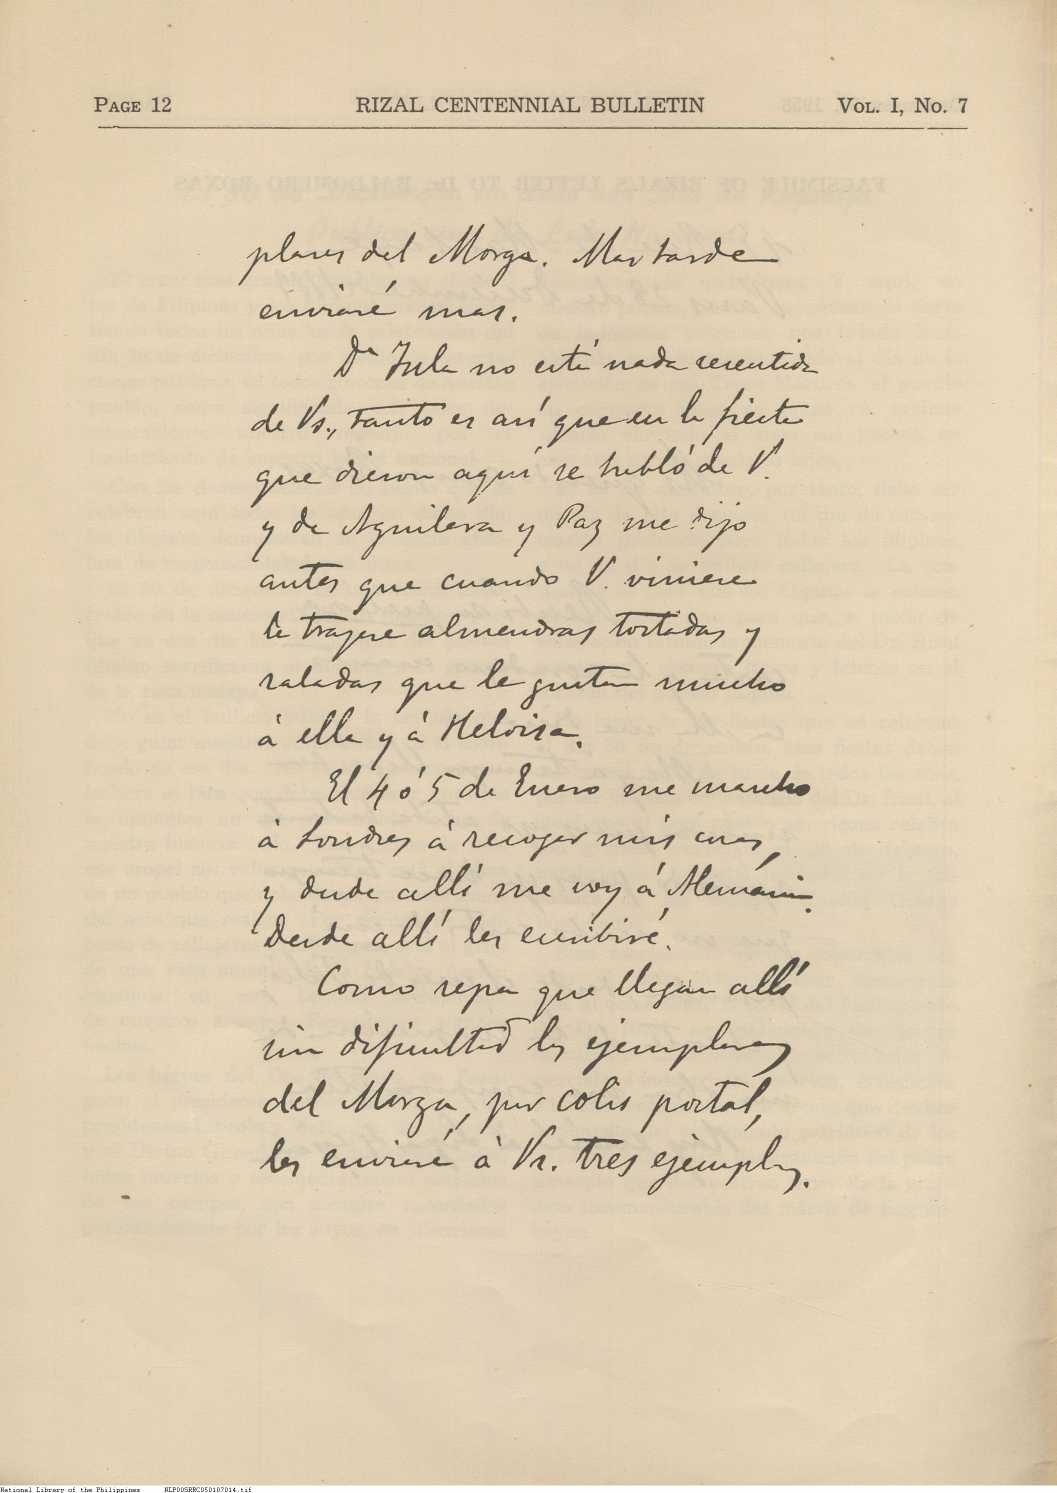 PAGE 12 RIZAL CENTENNIAL BULLETIN VOL. I, NO. 7
plares del Morga. Mas tarde
enviaré mas.
Dª Jula no está nada resentida
de Vs., tanto es así que en la fiesta
que dieron aquí se habló de V.
y de Aguilera y Paz me dijo
antes que cuando V. viniese
le trajese almendras tostadas y
saladas que le gustan mucho
á ella y á Heloisa.
El 4 ó 5 de Enero me marcho
á Londres á recoger mis cosas,
y desde allí me voy á Alemania.
Desde allí les escribiré.
Como sepa que llegan allí
sin dificultad los ejemplares
del Morga, por colis postal,
les enviaré á Vs. tres ejemplares.
National Library of the Philippines NLP00SRRC050107014.tif